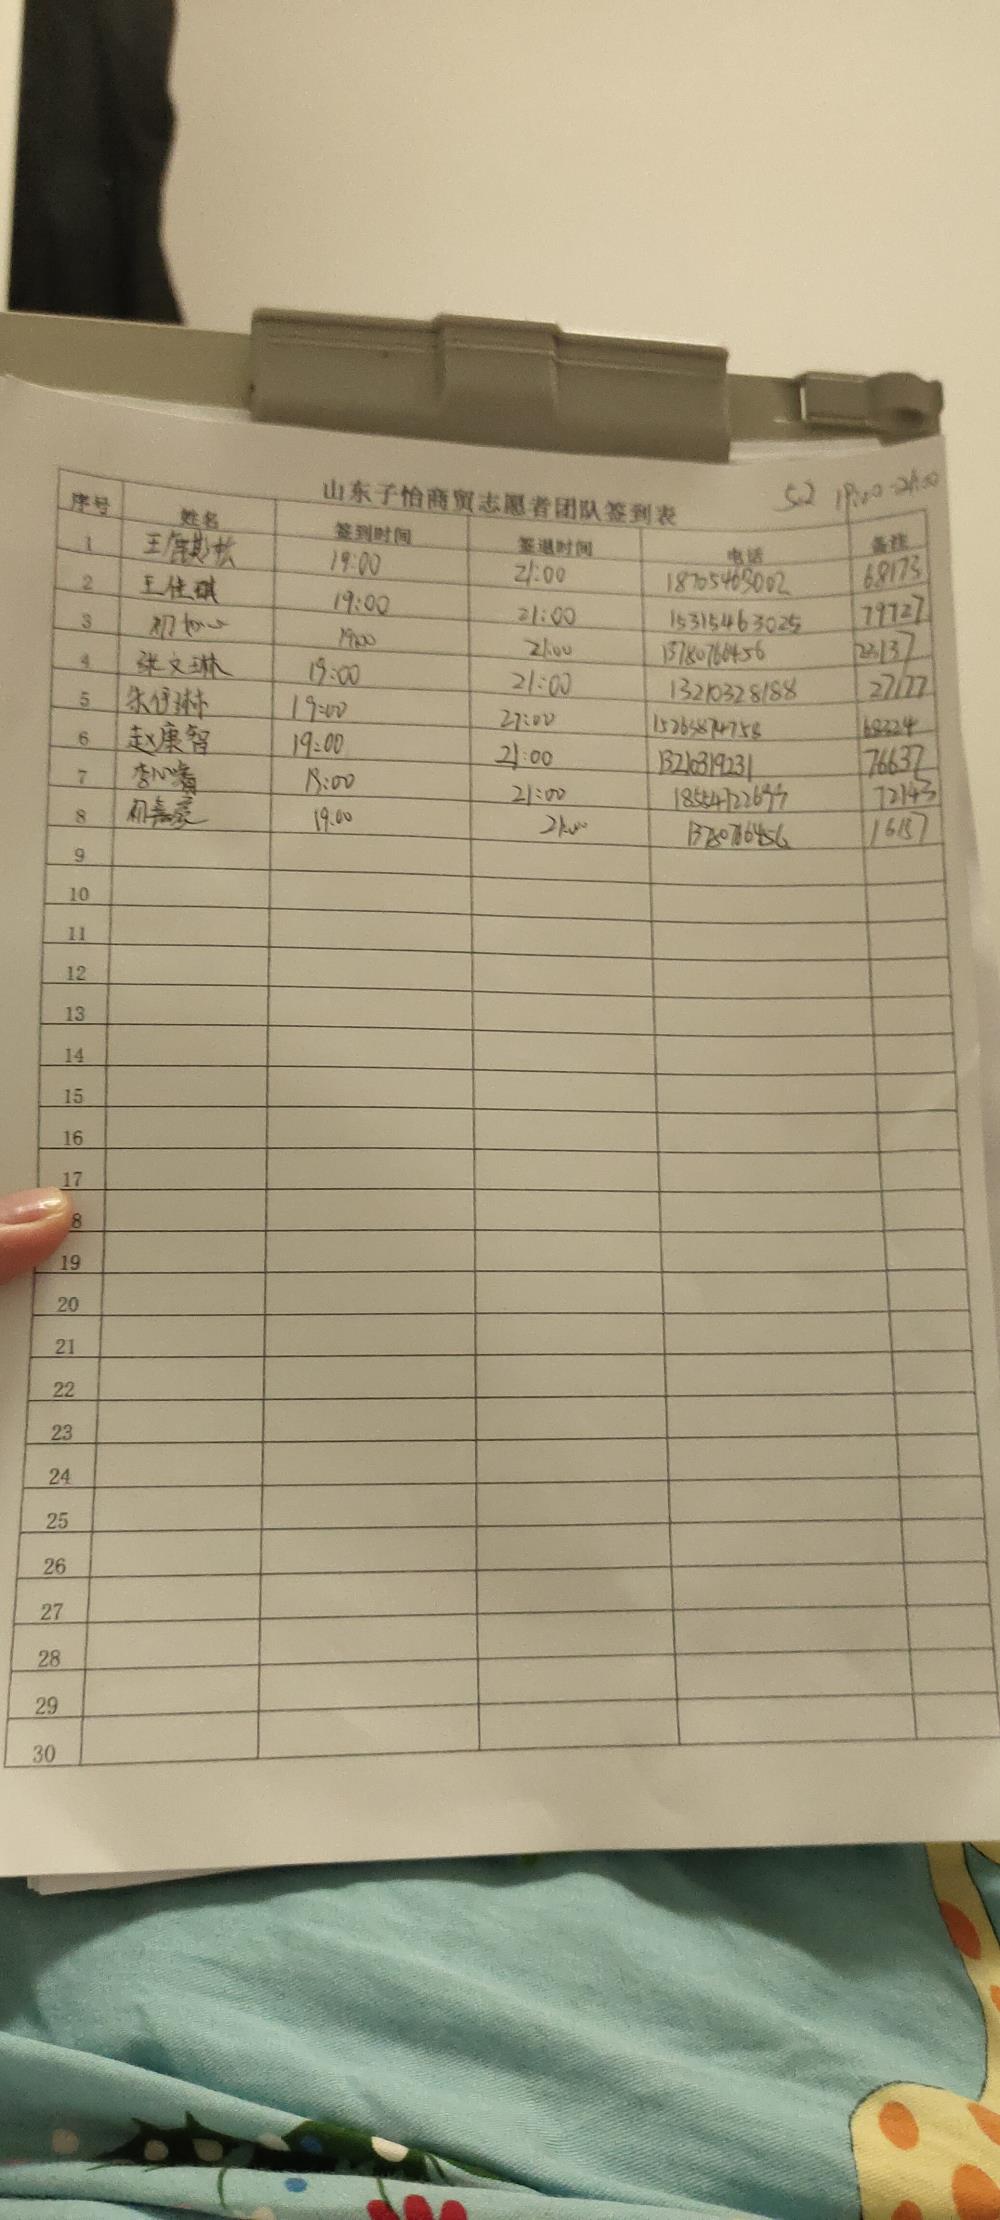 山东子怡商贸志愿者团队签到表 5.2 19:00-21:00
序号 姓名 签到时间 签退时间 电话 备注
1 19:00 21:00 18705463002 68173
2 王佳琪 19:00 21:00 15315463025 79727
3 19:00 21:00 13780766456 23137
4 张文琳 19:00 21:00 13210328188 27177
5 19:00 21:00 15265874758 68324
6 赵康智 19:00 21:00 13210319231 76637
7 21:00 72143
8 19:00 21:00 13780766456
9
10
11
12
13
14
15
16
17
8
19
20
21
22
23
24
25
26
27
28
29
30